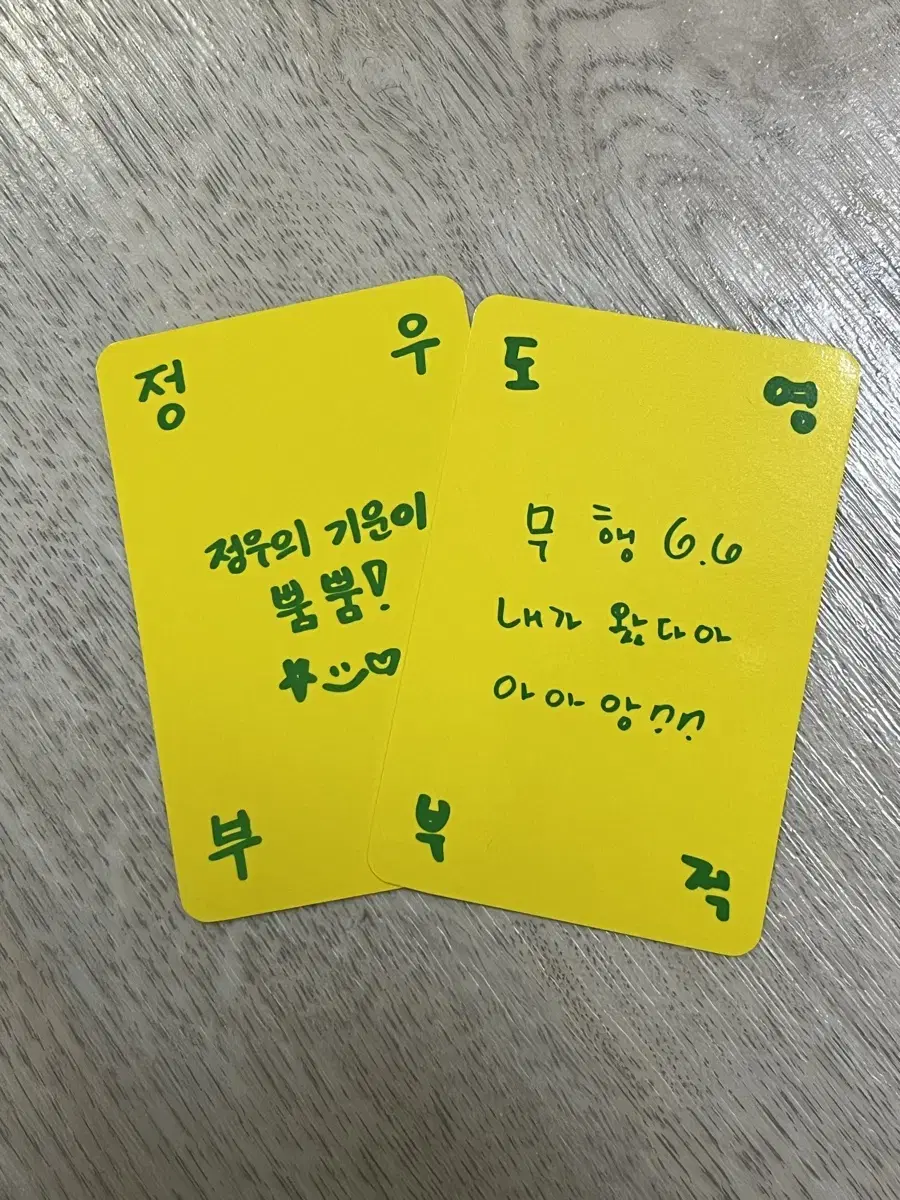 정 우
정우의 기운이
뿜뿜!
부
도 영
무 행 6.6
내가 왔다아
아아앙!!
부 적